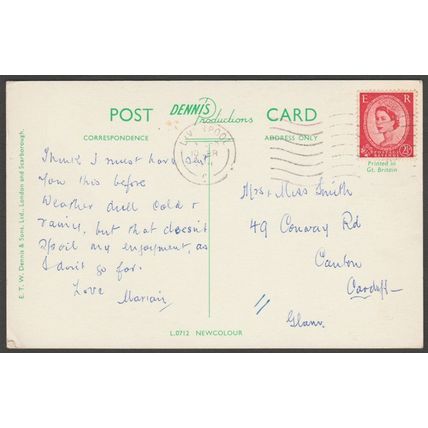 POST DENNIS Productions CARD
CORRESPONDENCE ADDRESS ONLY
E. T. W. Dennis & Sons, Ltd., London and Scarborough.
I think I must have sent
you this before
Weather dull cold &
rainy, but that doesn't
spoil my enjoyment, as
I don't go far.
Love
Marian
LIVERPOOL
E R
2½
Printed in
Gt. Britain
Mrs & Miss Smith
49 Conway Rd
Canton
Cardiff
Glam.
L.0712 NEWCOLOUR